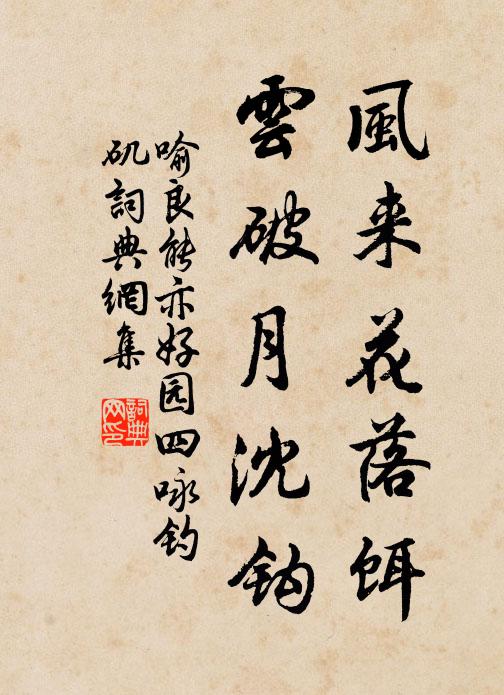 風来花落餌
雲破月沈鈎
喻良能亦好园四咏钓
矶詞典網集
詞典
网印